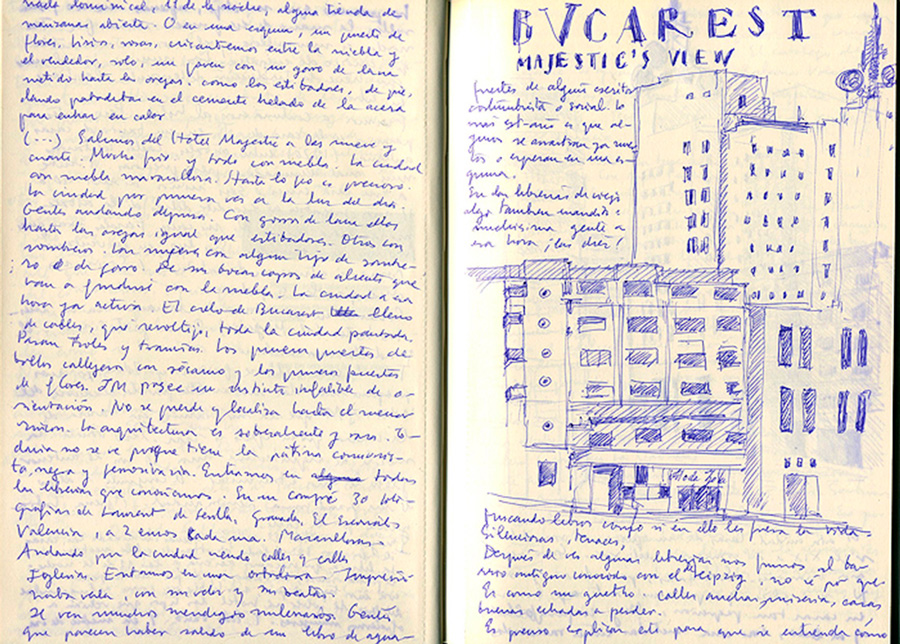 nado dominical, 11 de la noche, alguna tienda de
manzanas abierta. O en una esquina, un puesto de
flores, lirios, rosas, encontramos entre la niebla y
el vendedor, solo, un joven con un gorro de lana
metido hasta las orejas. como los estibadores, de pie,
dando pataditas en el cemento helado de la acera
para entrar en calor
(...) Salimos del Hotel Majestic a las nueve y
cuarto. Mucho frío y todo con niebla. La ciudad
con niebla maravillosa. Hasta lo feo es precioso.
La ciudad por primera vez a la luz del día.
Gentes andando deprisa. Con gorros de lana ellos
hasta las orejas igual que estibadores. Otros con
sombrero. Las mujeres con algún tipo de sombre-
ro o de gorro. De sus bocas copos de aliento que
van a fundirse con la niebla. La ciudad a esa
hora ya activa. El cielo de Bucarest lleno
de cables, qué revoltijo, toda la ciudad pautada.
Pasan troles y tranvías. Los primeros puestos de
bollos callejeros con sésamo y los primeros puestos
de flores. JM posee un instinto infalible de o-
rientación. No se pierde y localiza hasta el menor
La arquitectura es soberaliente y rara. To-
davía no se ve porque tiene la pátina
ta, negra y Entramos en alguna todas
las librerías que conocíamos. En un compré 30 foto-
grafías de Laurent de Sevilla, Granada, El Escorial
Valencia, a 2 euros cada una. Maravillosas.
Andando por la ciudad viendo calles y calles
Iglesia. Entramos en una ortodoxa. Impresio-
naba verla, con sus velas y sus beatas.
Se ven muchos mendigos milenarios. Gentes
que parecen haber salido de un libro de agua-
BUCAREST
MAJESTIC'S VIEW
fuertes de algún escritor
costumbrista o social. Lo
más extraño es que al-
gunos se arrastran
o esperan en una es-
quina.
En dos librerías de viejo
algo también inaudito:
muchísima gente a
esa hora ¡las diez!
buscando libros como si en ello les fuera la vida.
Silenciosas, tenaces,
Después de ver algunas librerías nos fuimos al ba-
rrio antiguo conocido con el de Leipzig, no sé por qué.
Es como un calles anchas, miseria, casas
buenas echadas a perder.
Es preciso explicar esto para que se entienda cómo